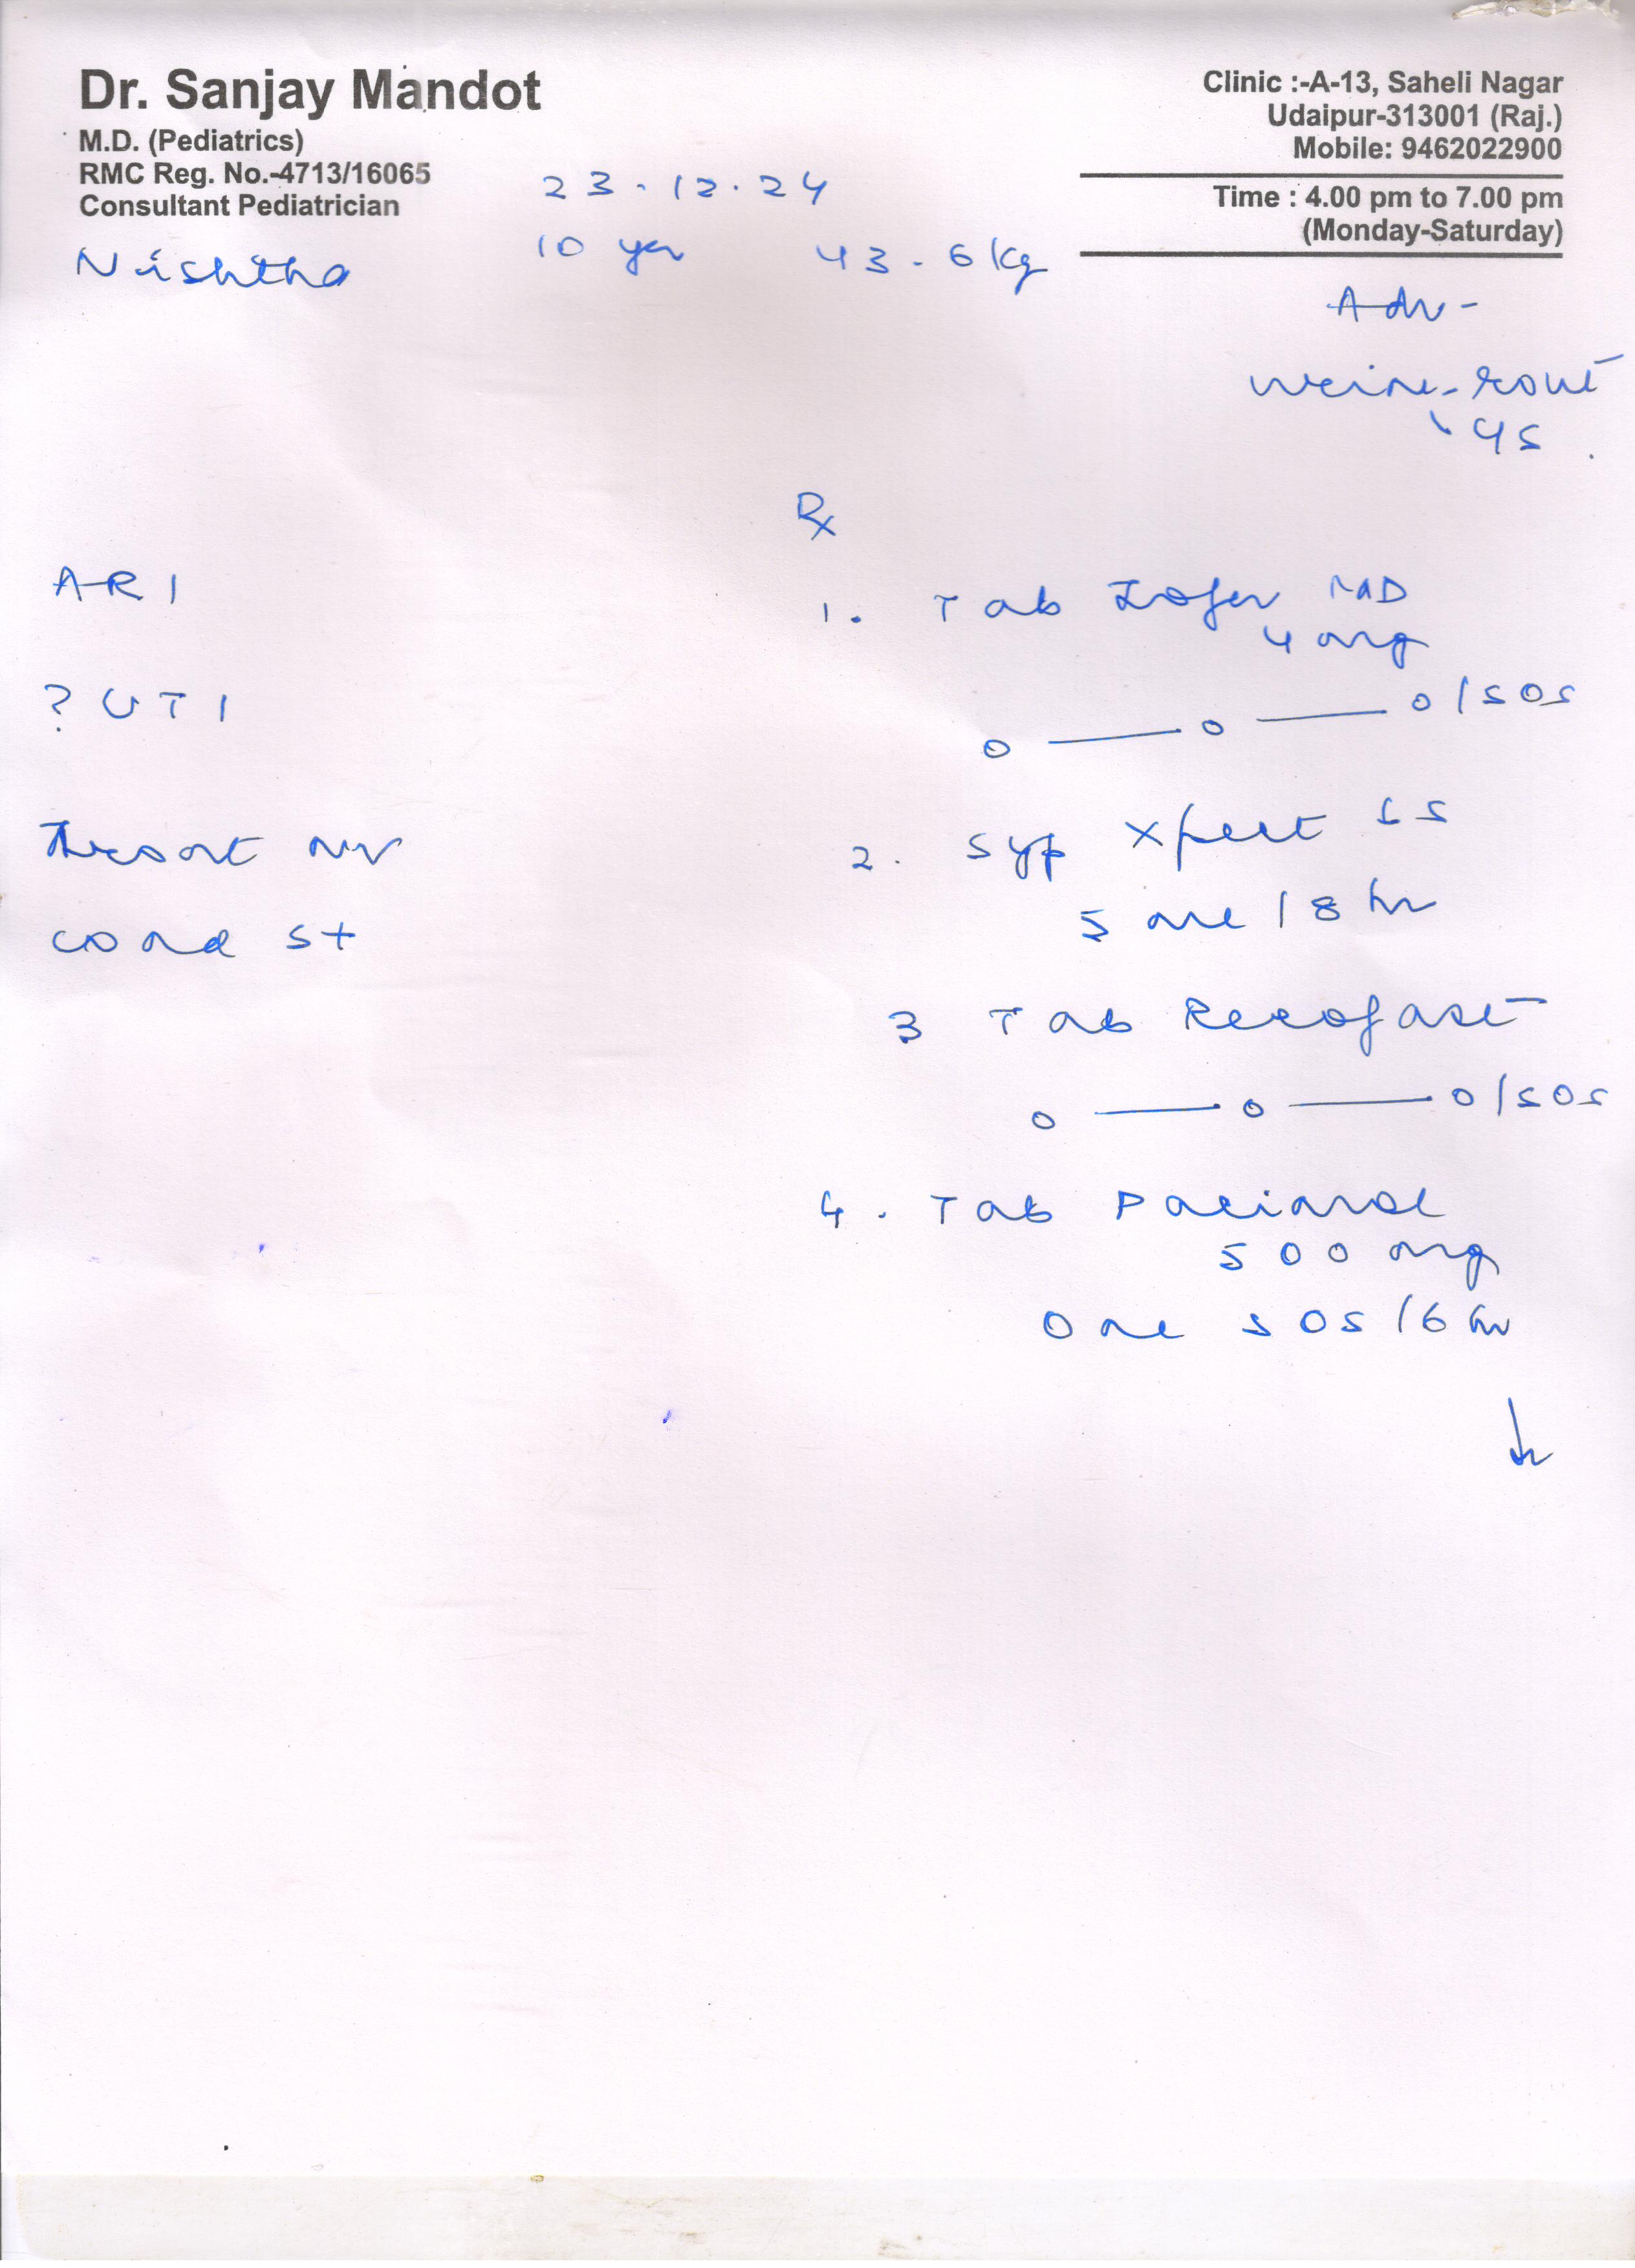 Dr. Sanjay Mandot
M.D. (Pediatrics)
RMC Reg. No.-4713/16065
Consultant Pediatrician
Clinic :-A-13, Saheli Nagar
Udaipur-313001 (Raj.)
Mobile: 9462022900
Time : 4.00 pm to 7.00 pm
(Monday-Saturday)
23.12.24
Nishtha 10 yr 43.6 kg
Adv-
ARI
? UTI
Throat
Rx
1. Tab
4 mg
0 — 0 — 0/SOS
2. Syp Xpect LS
/ 8 hr
3 Tab
0 — 0 — 0/SOS
4. Tab Pacimol
500 mg
One SOS/6 hr